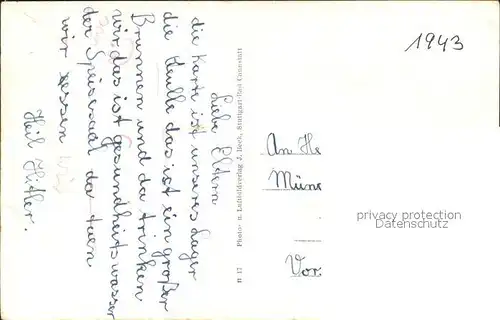 Liebe Eltern
die Karte ist unseres Lager
die Heulle das ist ein großer
Brunnen und da trinken
wir das ist gesundheitswasser
der Speisesaal da tuen
wir essen
Heil Hitler.
R 17 Photo- u. Luftbildverlag J. Beck, Stuttgart-Bad Cannstatt
1943
An He
Münc
Vor.
privacy protection
Datenschutz